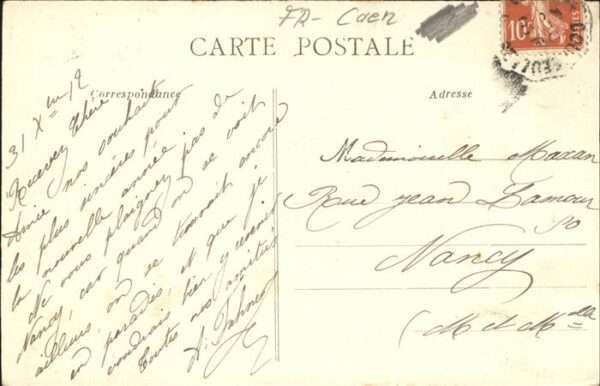 FR - Caen
CARTE POSTALE
Correspondance
Adresse
10
31 Xbre 12
Recevez chère
Amie nos souhaits
les plus sincères pour
la nouvelle année.
Ne vous plaignez pas de
Nancy, car quand on se voit
ailleurs, on se trouvait encore
en paradis, et que je
voudrais bien y revenir
Toutes nos amitiés
Mademoiselle Maxan
Rue Jean Lamour
50
Nancy
(M et Mlle